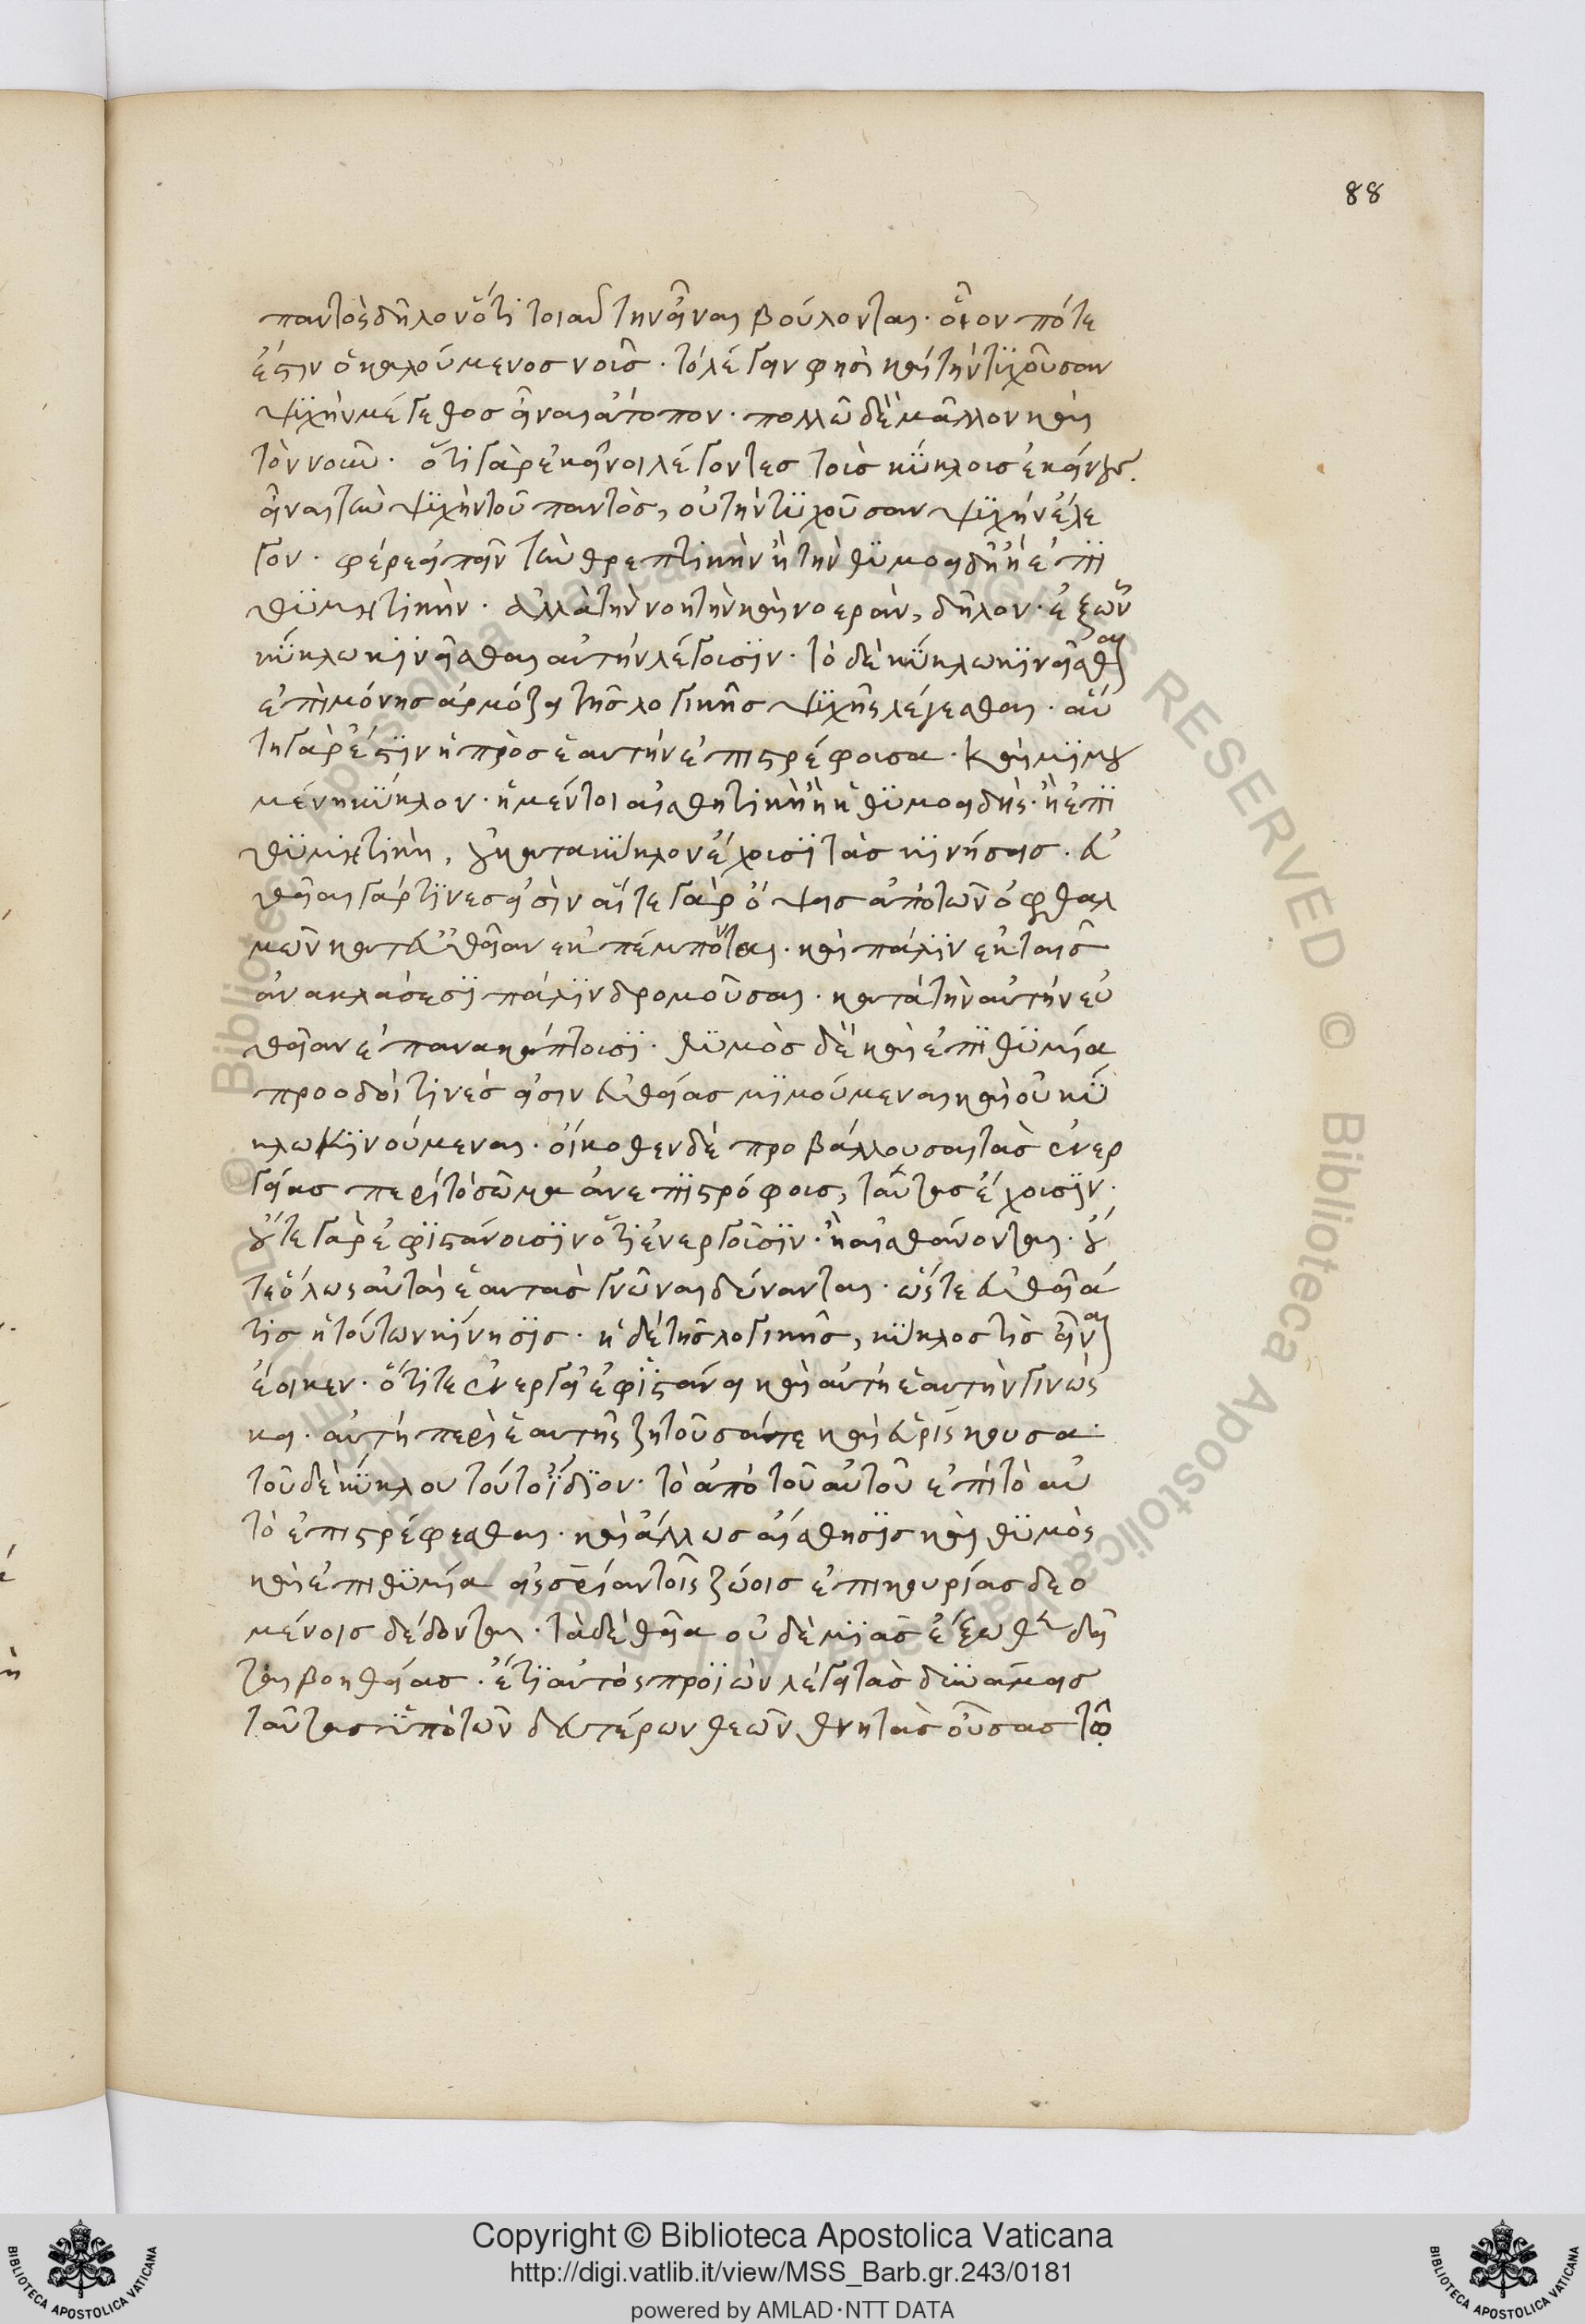 88
παντὸς δῆλον ὅτι τοιαύτην εἶναι βούλονται· οἷον πότε
ἐστιν ὁ καλούμενος νοῦς· τὸ λέγειν φησὶ καὶ τὴν τυχοῦσαν
ψυχὴν μέγεθος εἶναι ἄτοπον· πολλῶ δὲ μᾶλλον καὶ
τὸν νοῦν· ὅτι γὰρ ἐκεῖνοι λέγοντες τοῖς κύκλοις ἐκείνοις
εἶναι τὴν ψυχὴν τοῦ παντὸς, οὐ τὴν τυχοῦσαν ψυχὴν ἔλε
γον· φέρε εἰπεῖν τὴν θρεπτικὴν ἢ τὴν θυμοειδῆ ἢ ἐπι
θυμητικὴν· ἀλλὰ τὴν νοητὴν καὶ νοερὰν, δῆλον· ἐξ ὧν
κύκλω κινεῖσθαι αὐτὴν λέγουσιν· τὸ δὲ κύκλω κινεῖσθαι
ἐπὶ μόνης ἁρμόζει τῆς λογικῆς ψυχῆς λέγεσθαι· αὕ
τη γάρ ἐστιν ἡ πρὸς ἑαυτὴν ἐπιστρέφουσα· καὶ μιμου
μένη κύκλον· ἡ μέντοι αἰσθητικὴ ἢ ἡ θυμοειδὴς· ἢ ἐπι
θυμητικὴ, οὐ κατα κύκλον ἔχουσι τὰς κινήσεις· εὐ
θεῖαι γάρ τινες εἰσὶν αἵ τε γὰρ ὄψεις ἀπὸ τῶν ὀφθαλ
μῶν κατ εὐθεῖαν ἐκπέμπονται· καὶ πάλιν ἐν ταῖς
ἀνακλάσεσι παλινδρομοῦσαι· κατὰ τὴν αὐτὴν εὐ
θεῖαν ἐπανακάμπτουσι· θυμὸς δὲ καὶ ἐπιθυμία
προοδοί τινές εἰσιν εὐθείας μιμούμεναι καὶ οὐ κύ
κλω κινούμεναι· οἴκοθεν δὲ προβάλλουσαι τὰς ἐνερ
γείας περὶ τὸ σῶμα ἀνεπιστρόφους, ταύτας ἔχουσιν·
οὔτε γὰρ ἐφιστάνουσιν ὅτι ἐνεργοῦσιν· ἢ αἰσθάνονται· οὔ
τε ὅλως αὐταὶ ἑαυτὰς γνῶναι δύνανται· ὥστε εὐθεῖά
τις ἡ τούτων κίνησις· ἡ δὲ τῆς λογικῆς, κύκλος τις εἶναι
ἔοικεν· ὅτι τε ἐνεργεῖ ἐφιστάνει καὶ αὐτὴ ἑαυτὴν γινώσ
κει· αὐτὴ περὶ ἑαυτῆς ζητοῦσά τε καὶ εὑρίσκουσα·
τοῦ δὲ κύκλου τοῦτο ἴδιον· τὸ ἀπὸ τοῦ αὐτοῦ ἐπὶ τὸ αὐ
τὸ ἐπιστρέφεσθαι· καὶ ἄλλως αἴσθησις καὶ θυμὸς
καὶ ἐπιθυμία εἰς σωτηρίαν τοῖς ζώοις ἐπικουρίας δεο
μένοις δέδονται· τὰ δὲ θεῖα οὐδὲ μιᾶς ἔξωθεν δεῖ
ται βοηθείας· ἔτι αὐτὸς προϊὼν λέγει τὰς δυνάμεις
ταύτας ὑπὸ τῶν δευτέρων θεῶν θνητὰς οὔσας